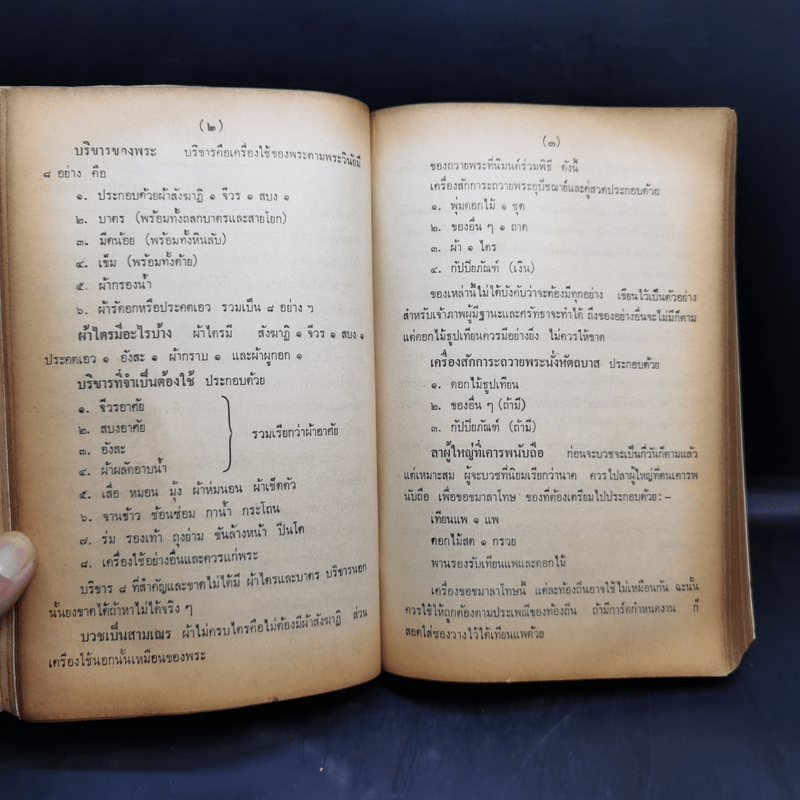 (๒)
บริขารของพระ บริขารคือเครื่องใช้ของพระตามพระวินัยมี
๘ อย่าง คือ
๑. ประกอบด้วยผ้าสังฆาฏิ ๑ จีวร ๑ สบง ๑
๒. บาตร (พร้อมทั้งถลกบาตรและสายโยก)
๓. มีดน้อย (พร้อมทั้งหินลับ)
๔. เข็ม (พร้อมทั้งด้าย)
๕. ผ้ากรองน้ำ
๖. ผ้ารัดอกหรือประคตเอว รวมเป็น ๘ อย่าง ๆ
ผ้าไตรมีอะไรบ้าง ผ้าไตรมี สังฆาฏิ ๑ จีวร ๑ สบง ๑
ประคตเอว ๑ อังสะ ๑ ผ้ากราบ ๑ และผ้าผูกอก ๑
บริขารที่จำเป็นต้องใช้ ประกอบด้วย
๑. จีวรอาศัย
๒. สบงอาศัย
๓. อังสะ
๔. ผ้าผลัดอาบน้ำ
รวมเรียกว่าผ้าอาศัย
๕. เสื่อ หมอน มุ้ง ผ้าห่มนอน ผ้าเช็ดตัว
๖. จานข้าว ช้อนซ่อม กาน้ำ กระโถน
๗. ร่ม รองเท้า ถุงย่าม ขันล้างหน้า ปิ่นโต
๘. เครื่องใช้อย่างอื่นและควรแก่พระ
บริขาร ๘ ที่สำคัญและขาดไม่ได้มี ผ้าไตรและบาตร บริขารนอก
นั้นยงขาดได้ถ้าหาไม่ได้จริง ๆ
บวชเป็นสามเณร ผ้าไม่ครบไตรคือไม่ต้องมีผ้าสังฆาฏิ ส่วน
เครื่องใช้นอกนั้นเหมือนของพระ
(๓)
ของถวายพระที่นิมนต์ร่วมพิธี ดังนี้
เครื่องสักการะถวายพระอุปัชฌาย์และคู่สวดประกอบด้วย
๑. พุ่มดอกไม้ ๑ ชุด
๒. ของอื่น ๆ ๑ ถาด
๓. ผ้า ๑ ไตร
๔. กัปปิยภัณฑ์ (เงิน)
ของเหล่านี้ไม่ได้บังคับว่าจะต้องมีทุกอย่าง เขียนไว้เป็นตัวอย่าง
สำหรับเจ้าภาพผู้มีฐานะและศรัทธาจะทำได้ ถึงของอย่างอื่นจะไม่มีก็ตาม
แต่ดอกไม้ธูปเทียนควรมีอย่างยิ่ง ไม่ควรให้ขาด
เครื่องสักการะถวายพระนั่งหัตถบาส ประกอบด้วย
๑. ดอกไม้ธูปเทียน
๒. ของอื่น ๆ (ถ้ามี)
๓. กัปปิยภัณฑ์ (ถ้ามี)
ลาผู้ใหญ่ที่เคารพนับถือ ก่อนจะบวชจะเป็นกี่วันก็ตามแล้ว
แต่เหมาะสม ผู้จะบวชที่นิยมเรียกว่านาค ควรไปลาผู้ใหญ่ที่ตนเคารพ
นับถือ เพื่อขอขมาลาโทษ ของที่ต้องเตรียมไปประกอบด้วย:–
เทียนแพ ๑ แพ
ดอกไม้สด ๑ กรวย
พานรองรับเทียนแพและดอกไม้
เครื่องขอขมาลาโทษนี้ แต่ละท้องถิ่นอาจใช้ไม่เหมือนกัน ฉะนั้น
ควรใช้ให้ถูกต้องตามประเพณีของท้องถิ่น ถ้ามีการ์ดกำหนดงาน ก็
สอดใส่ซองวางไว้ใต้เทียนแพด้วย